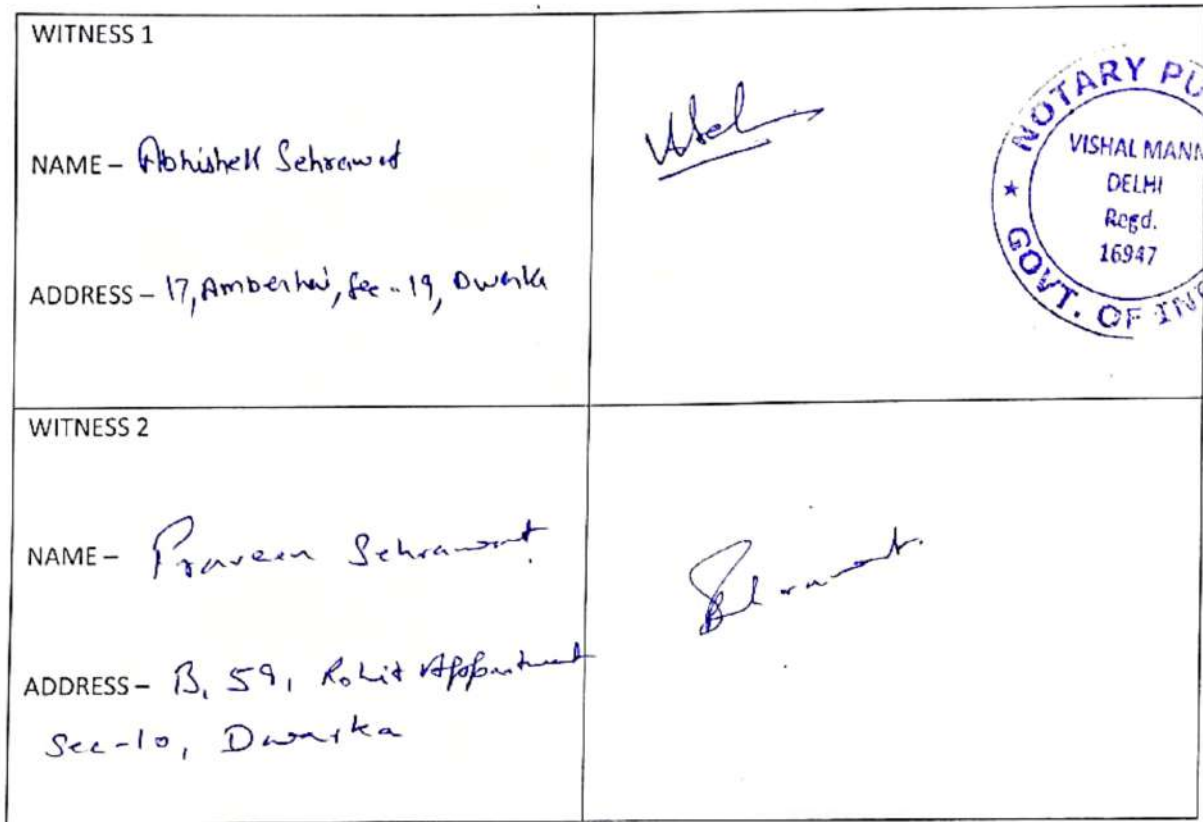 WITNESS 1
NAME – Abhishek Sehrawat
ADDRESS – 17, Amberhai, Sec - 19, Dwarka
NOTARY PU
VISHAL MANN
DELHI
Regd.
16947
GOVT. OF IND
WITNESS 2
NAME – Praveen Sehrawat
Sehrawat
ADDRESS – B, 59, Rohit Appartment
Sec-10, Dwarka